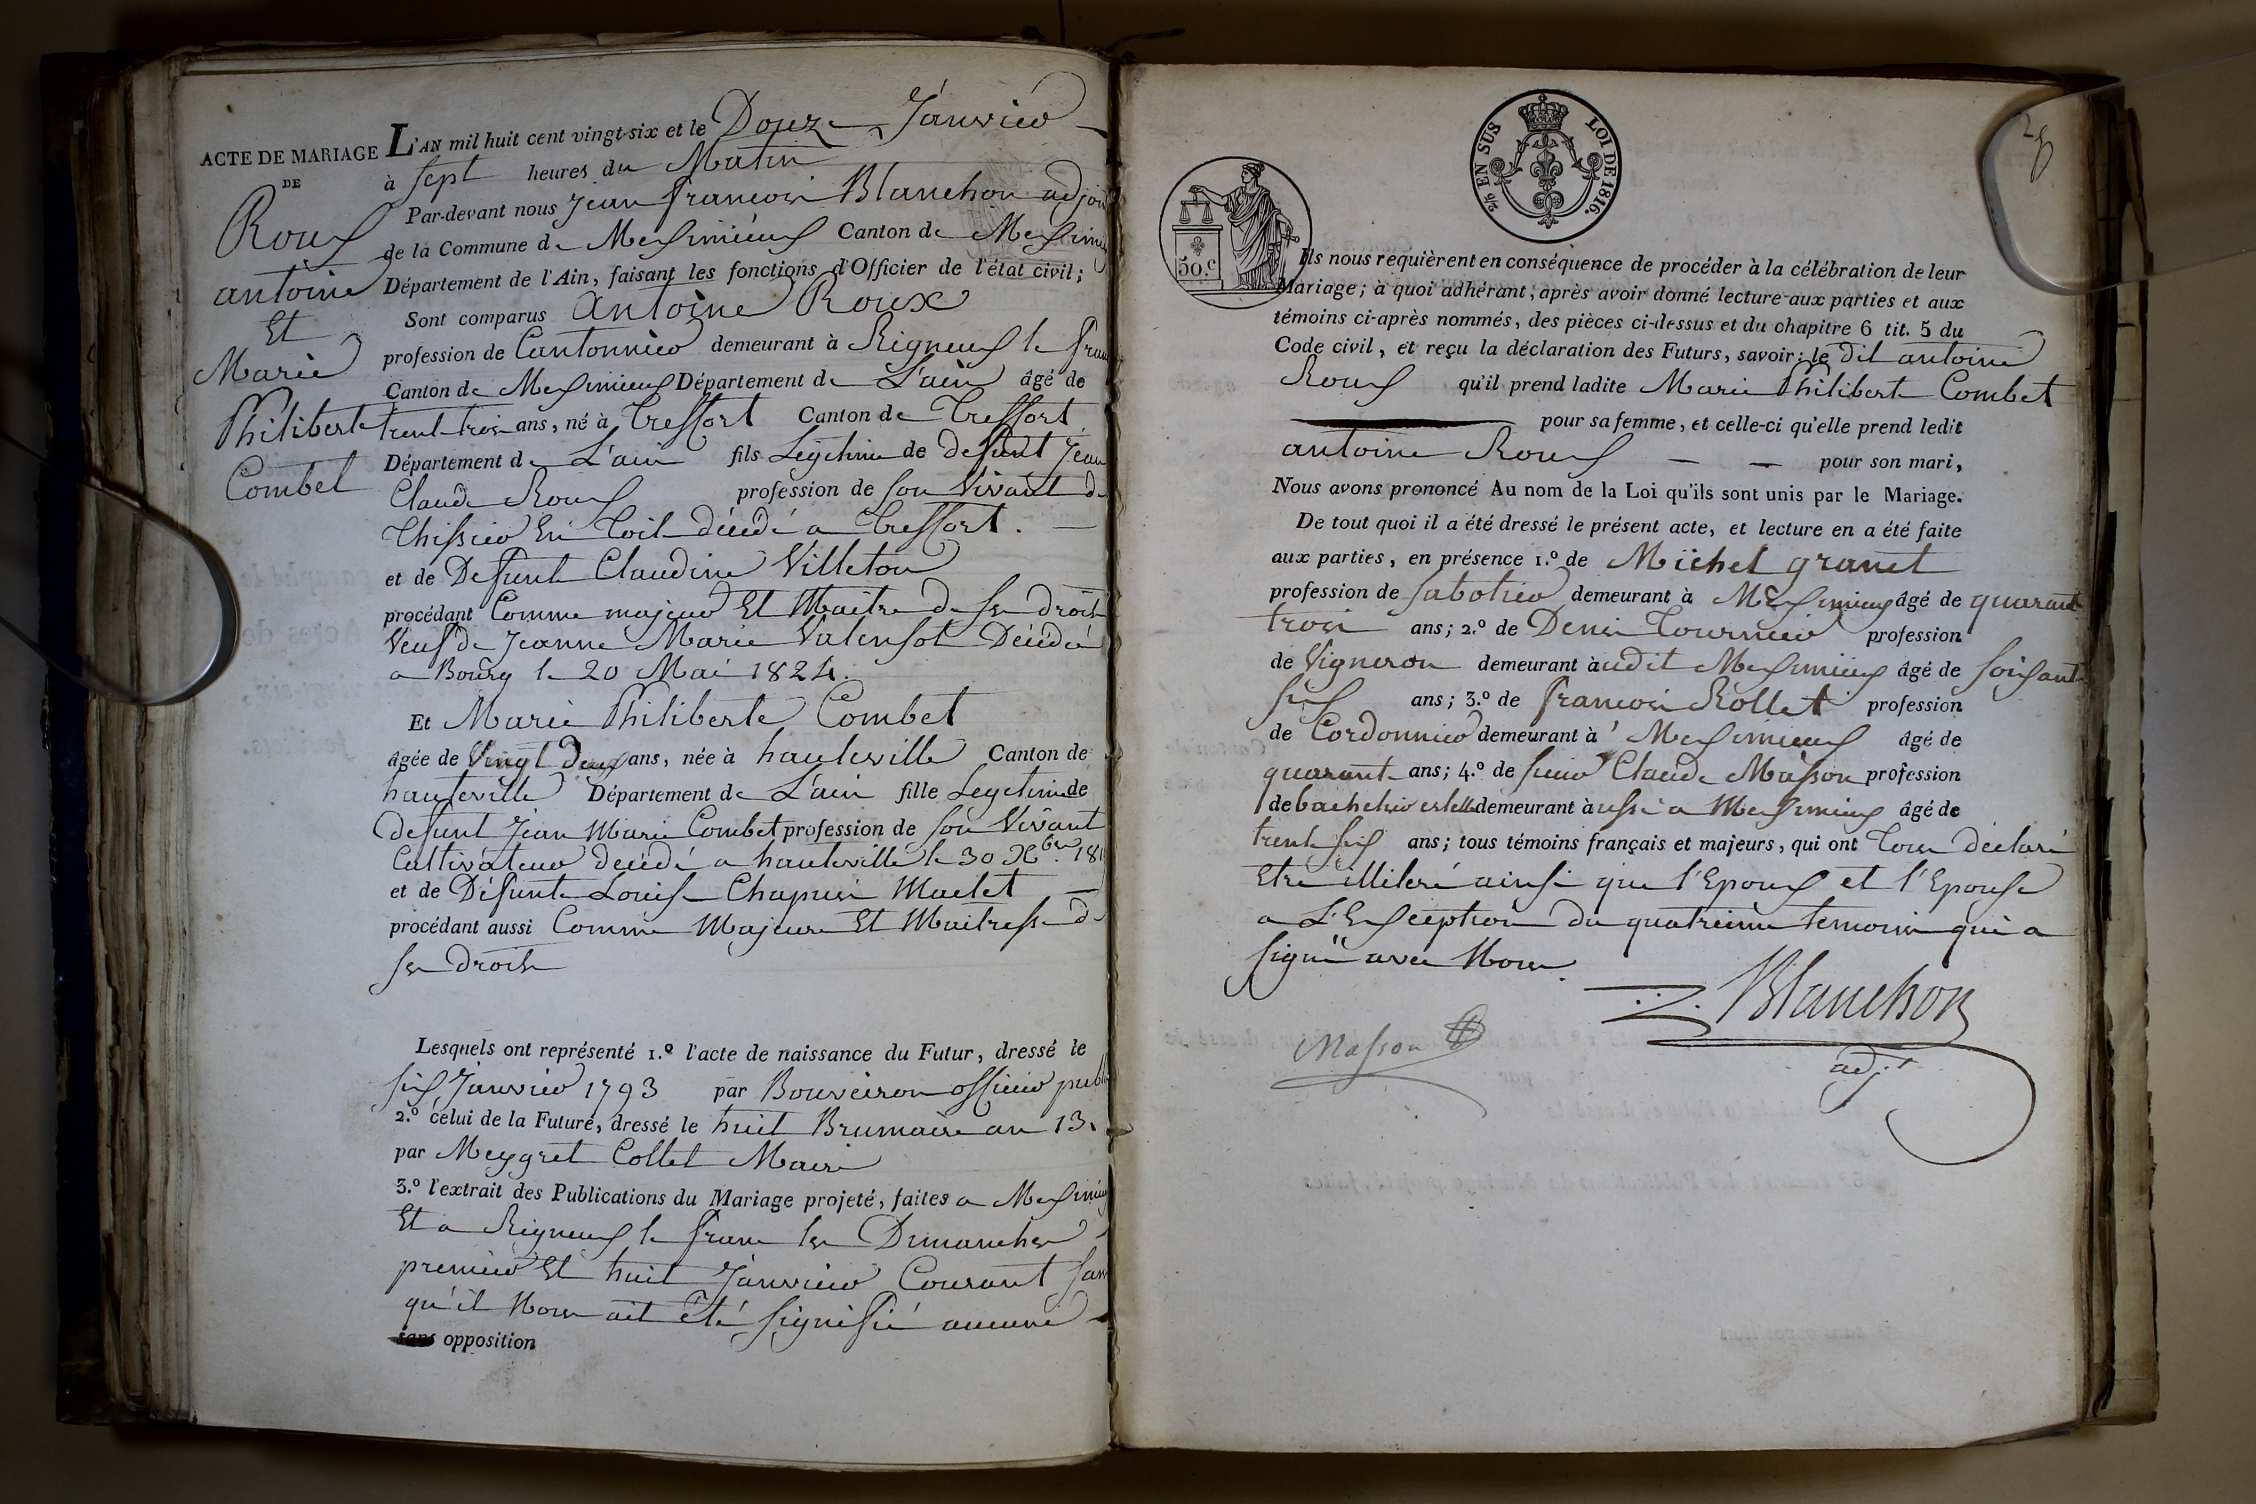 ACTE DE MARIAGE
DE
Roux
antoine
Et
Marie
Philiberte
Combet
L'AN mil huit cent vingt-six et le Douze Janvier
à sept heures du Matin
Par-devant nous jean francois Blanchon adjoin
de la Commune de Meximieux Canton de Meximieux
Département de l'Ain, faisant les fonctions d'Officier de l'état civil;
Sont comparus Antoine Roux
profession de Cantonnier demeurant à Rigneux le franc
Canton de Meximieux Département de L'ain âgé de
trente trois ans, né à Treffort Canton de Treffort
Département de L'ain fils Legitime de defunt Jean
Claude Roux profession de son Vivant de
Thissier En Toile décédé a Treffort.
et de Defunte Claudine Villeton
procédant Comme majeur Et Maitre de ses droits
Veuf de Jeanne Marie Valensot Décédée
a Bourg le 20 Mai 1824.
Et Marie Philiberte Combet
âgée de Vingt Deux ans, née à hauteville Canton de
hauteville Département de L'ain fille Legitime de
defunt Jean Marie Combet profession de son Vivant
Cultivateur décédé a hauteville le 30 Xbre 181
et de Défunte Louise Chapuis Maclet
procédant aussi Comme Majeure Et Maitresse de
ses droits
Lesquels ont représenté 1.º l'acte de naissance du Futur, dressé le
six Janvier 1793 par Bouveiron officier publi
2.º celui de la Future, dressé le huit Brumaire an 13.
par Meygret Collet Maire
3.º l'extrait des Publications du Mariage projeté, faites a Meximieux
Et a Rigneux le franc les Dimanches
premier Et huit Janvier Courant sans
qu'il Nous ait été signifié aucune
sans opposition
28
2/10 EN SUS LOI DE 1816.
50.c
Ils nous requièrent en conséquence de procéder à la célébration de leur
Mariage; à quoi adhérant, après avoir donné lecture aux parties et aux
témoins ci-après nommés, des pièces ci-dessus et du chapitre 6 tit. 5 du
Code civil, et reçu la déclaration des Futurs, savoir: le dit antoine
Roux qu'il prend ladite Marie Philiberte Combet
pour sa femme, et celle-ci qu'elle prend ledit
antoine Roux pour son mari,
Nous avons prononcé Au nom de la Loi qu'ils sont unis par le Mariage.
De tout quoi il a été dressé le présent acte, et lecture en a été faite
aux parties, en présence 1.º de Michel granet
profession de sabotier demeurant à Meximieux âgé de quarante
trois ans; 2.º de Denis Tournier profession
de Vigneron demeurant audit Meximieux âgé de soixante
six ans; 3.º de francois Rollet profession
de Cordonnier demeurant à Meximieux âgé de
quarante ans; 4.º de sieur Claude Masson profession
de bachelier es lettre demeurant aussi a Meximieux âgé de
trente six ans; tous témoins français et majeurs, qui ont Tous déclaré
Etre illiteré ainsi que l'Epoux et l'Epouse
a L'Exception du quatrieme temoin qui a
signé avec Nous.
Blanchon
adjt
Masson